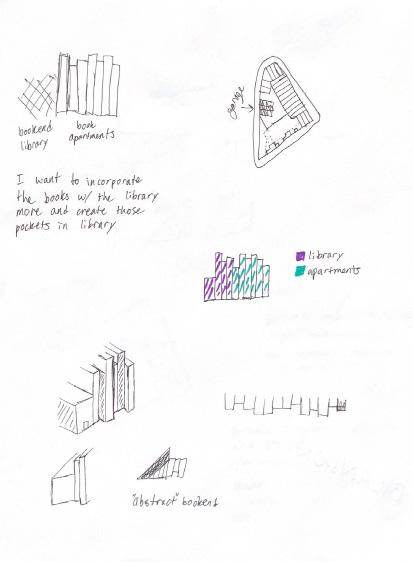 bookend library
book apartments
garage
I want to incorporate
the books w/ the library
more and create those
pockets in library
library
apartments
"abstract" bookend